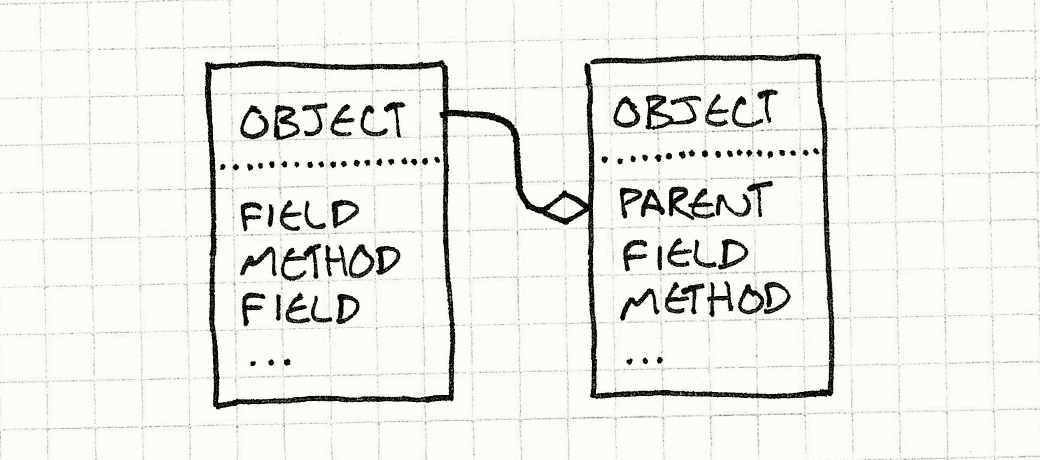 OBJECT
FIELD
METHOD
FIELD
...
OBJECT
PARENT
FIELD
METHOD
...